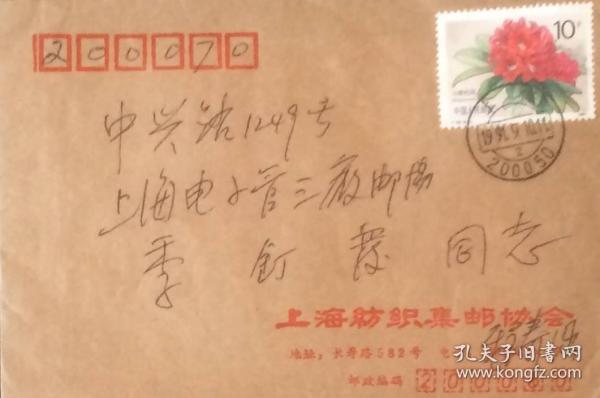 200070
10分
中国人民邮政
200050
中兴路1249号
上海电子管三厂邮协
季 钉 发 同志
上海纺织集邮协会
地址：长寿路582号 电
邮政编码 2000
孔夫子旧书网
www.kongfz.com